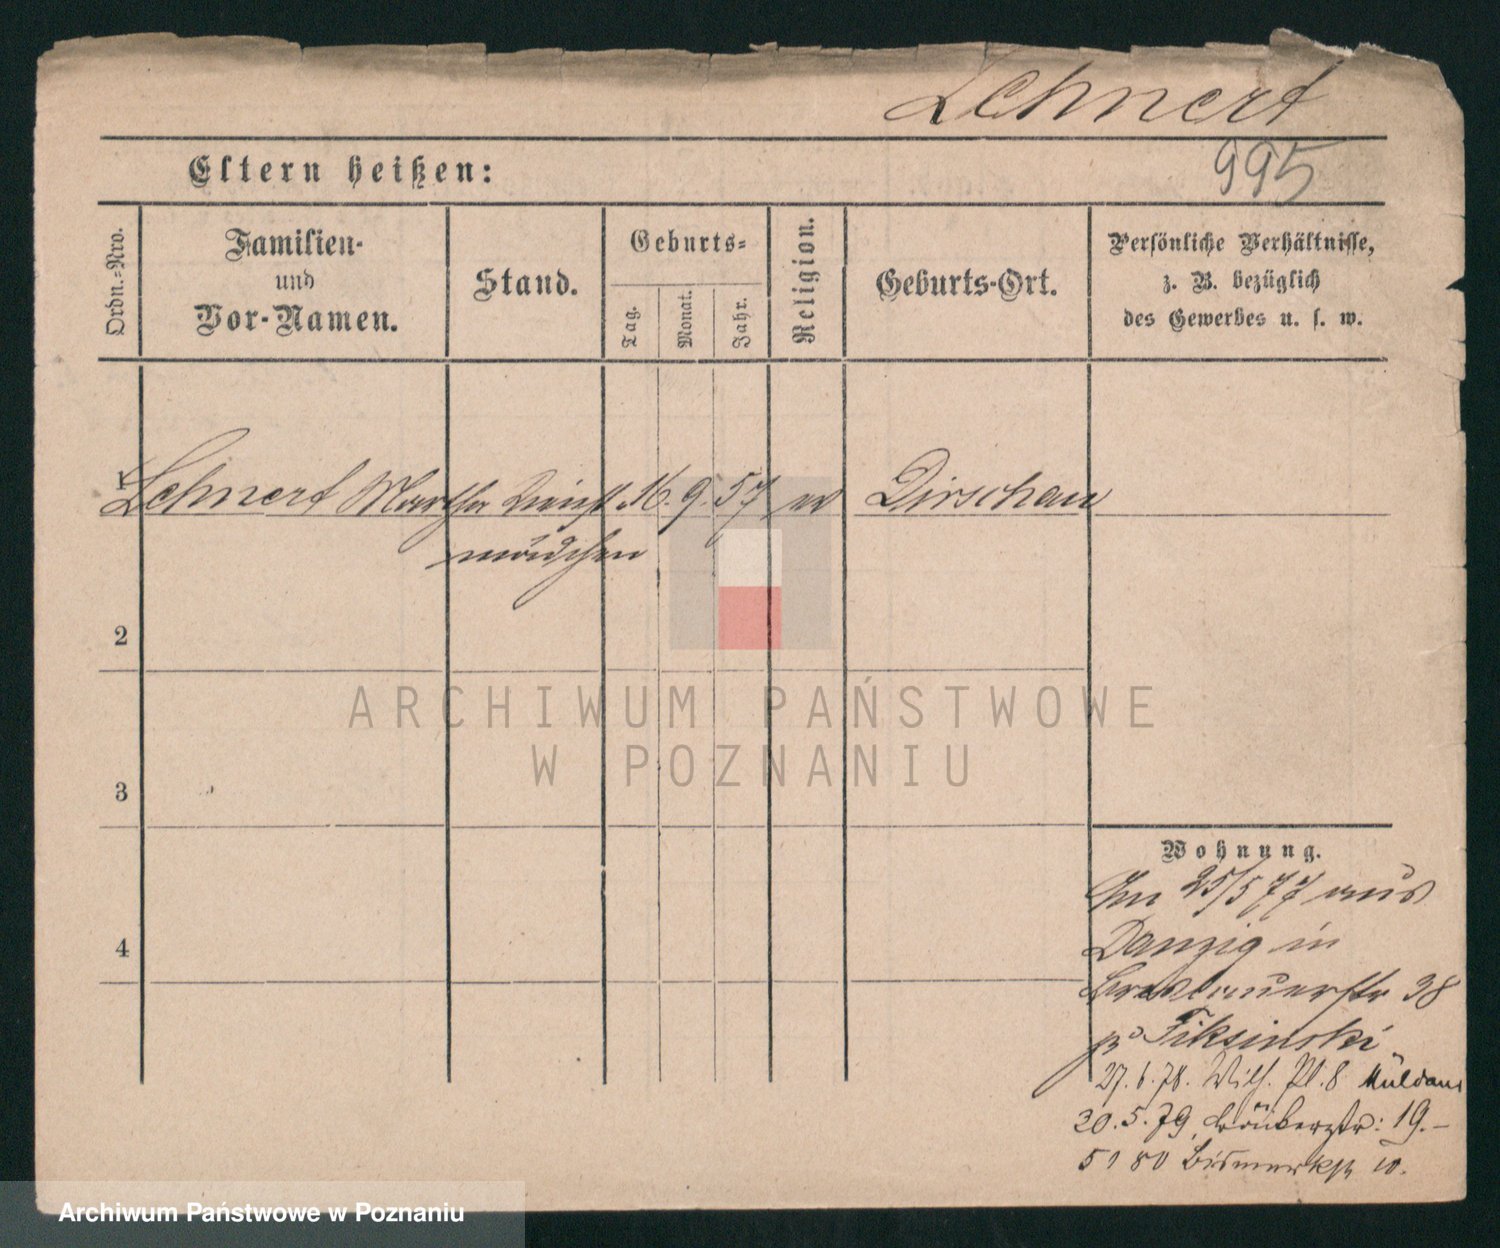 Lehnert
995
Eltern heißen:
Ordn.-Nro.
Familien-
und
Vor-Namen.
Stand.
Geburts-
Tag.
Monat.
Jahr.
Religion.
Geburts-Ort.
Persönliche Verhältnisse,
z. B. bezüglich
des Gewerbes u. s. w.
1
Lehnert Martha Dienst 16. 9. 57 ev Dirschau
mädchen
2
ARCHIWUM PAŃSTWOWE
W POZNANIU
3
Wohnung.
25/5 77 aus
4
Danzig in
Breslauerstr 38
Fiksinski
27.6.78. Wilh. Pl. 8 Müldaur
20.5.79 19.–
5 1 80 Bismarckstr 10.
Archiwum Państwowe w Poznaniu